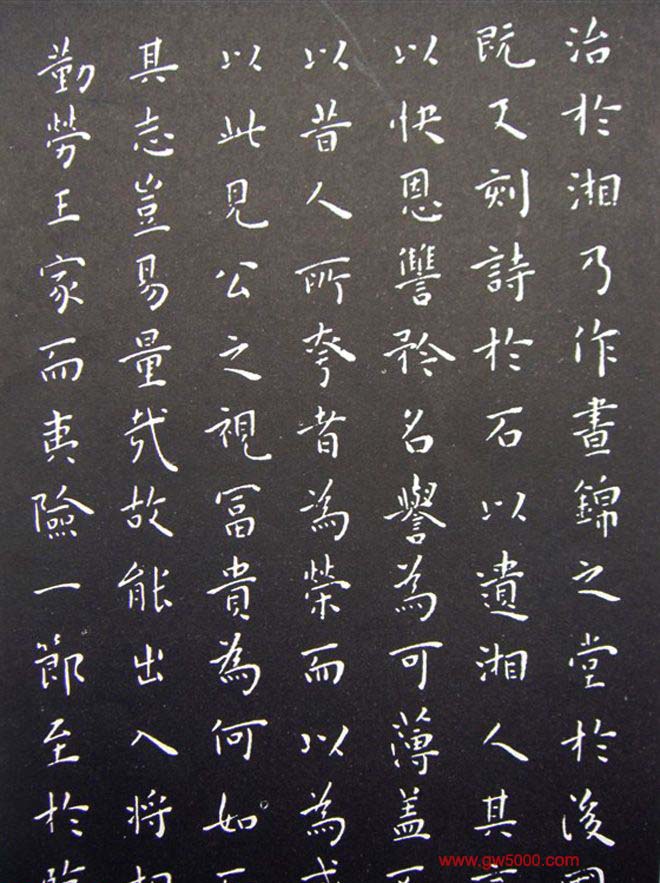 治於湘乃作晝錦之堂於後
既又刻詩於石以遺湘人其
以快恩讐矜名譽為可薄盖
以昔人所夸者為榮而以為
以此見公之視冨貴為何如
其志豈易量哉故能出入將
勤勞王家而夷險一節至於
www.gw5000.com